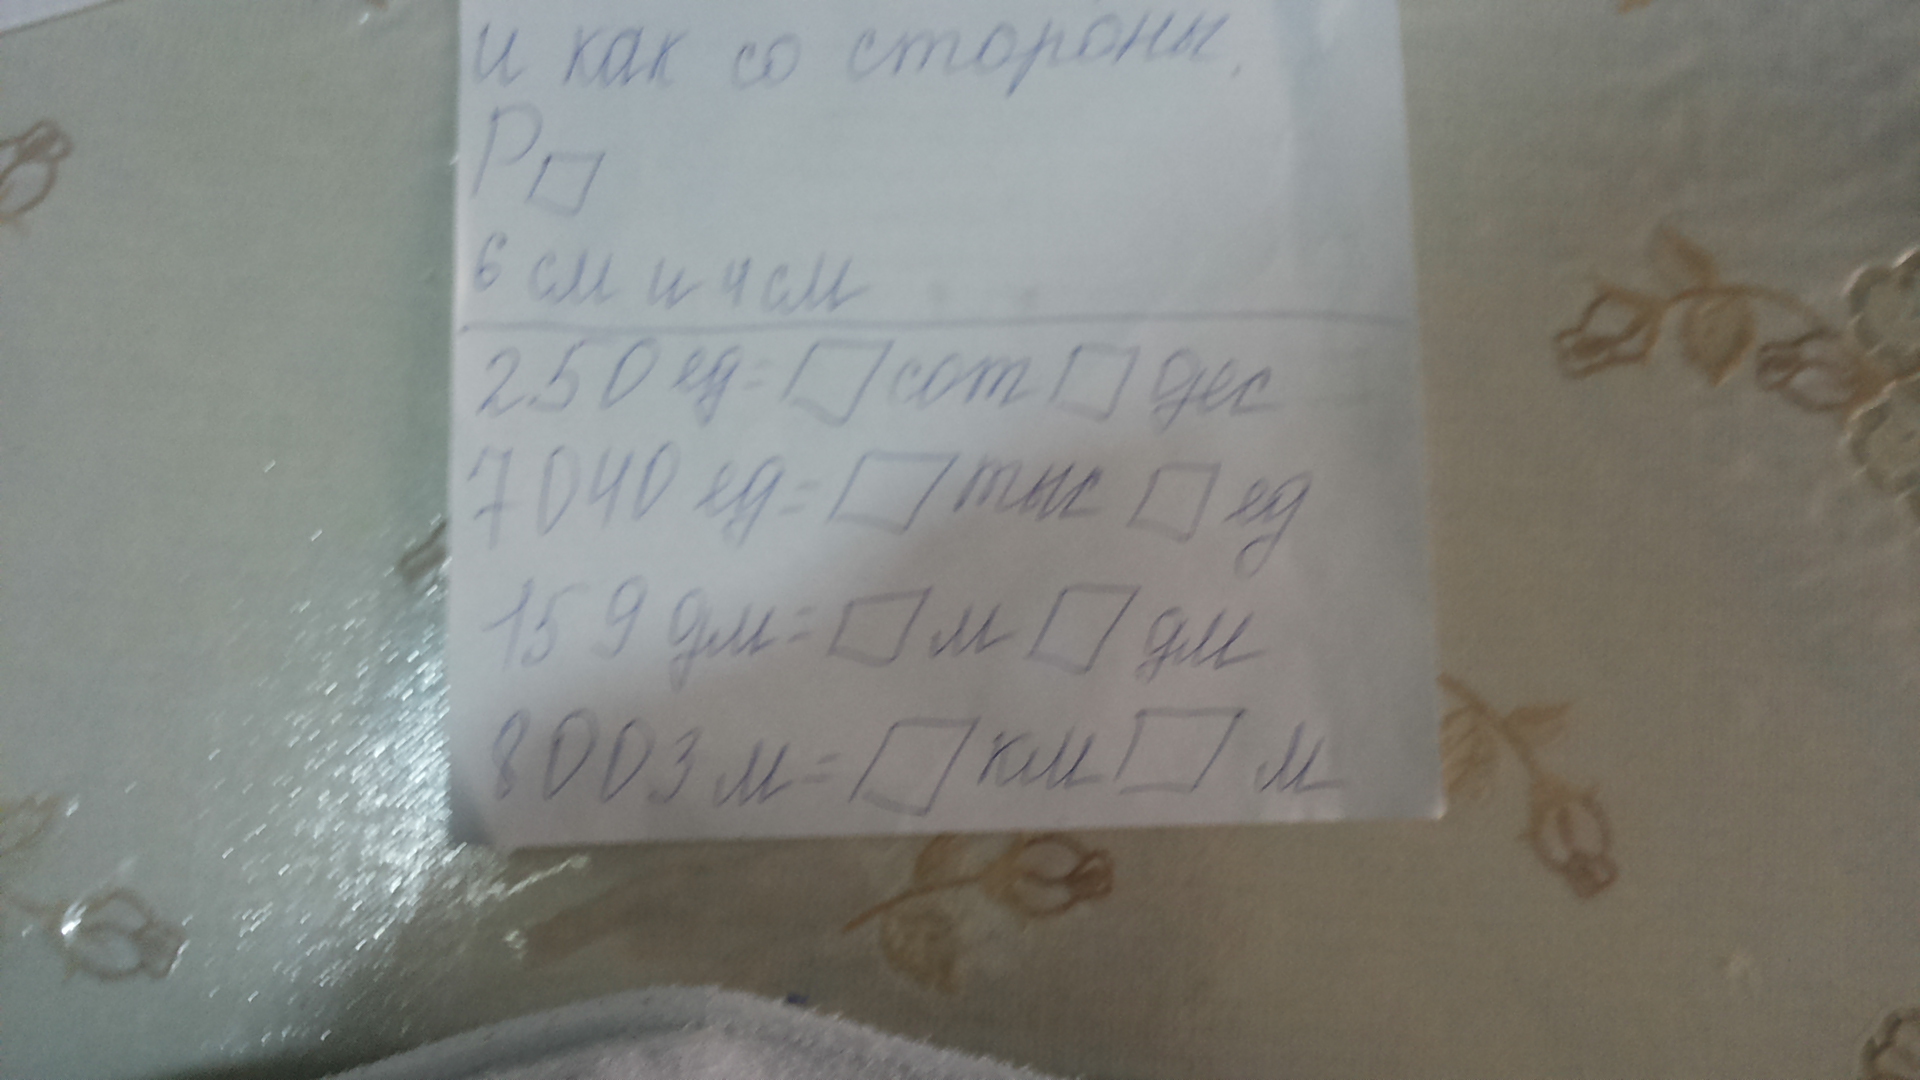 и как со стороны.
P▱
6 см и 4 см
250 ед = □ сот □ дес
7040 ед = □ тыс □ ед
159 дм = □ м □ дм
8003 м = □ км □ м